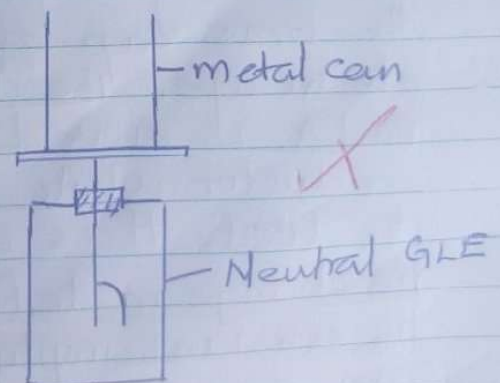 metal can
Neutral GLE